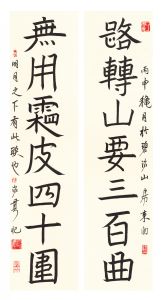 路轉山要三百曲
丙申穐月於碧山房東
無用霜皮四十圍
明月之下有此